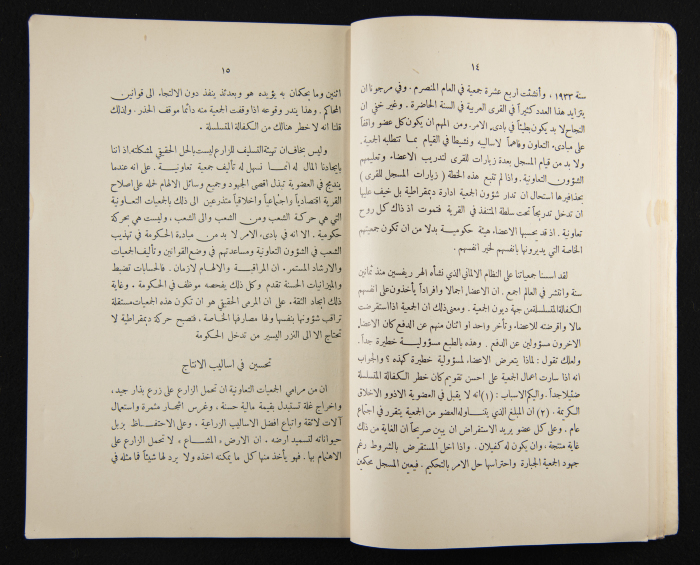 ١٤
سنة ١٩٣٣ ، وأنشئت اربع عشرة جمعية في العام المنصرم . وفي مرجونا ان
يتزايد هذا العدد كثيراً في القرى العربية في السنة الحاضرة . وغير خفي ان
النجاح لا بد يكون بطيئاً في بادىء الامر . ومن المهم ان يكون كل عضو واقفاً
على مبادىء التعاون وفاهماً لاساليبه ونشيطاً في القيام بما تتطلبه الجمعية .
ولا بد من قيام المسجل بعدة زيارات للقرى لتدريب الاعضاء وتعليمهم
الشؤون التعاونية . واذا لم تتبع هذه الخطة ( زيارات المسجل للقرى )
بحذافيرها استحال ان تدار شؤون الجمعية ادارة ديمقراطية بل خيف عليها
ان تدخل تدريجاً تحت سلطة المتنفذ في القرية فتموت اذ ذاك كل روح
تعاونية . اذ قد يحسبها الاعضاء هيئة حكومية بدلا من ان تكون جمعيتهم
الخاصة التي يديرونها بانفسهم لخير انفسهم .
لقد اسسنا جمعياتنا على النظام الالماني الذي نشأه الهر ريفسين منذ ثمانين
سنة وانتشر في العالم اجمع . ان الاعضاء اجمالا وافراداً يأخذون على انفسهم
الكفالة المتسلسلة من جهة ديون الجمعية . ومعنى ذلك ان الجمعية اذا استقرضت
مالا واقرضته للاعضاء وتأخر واحد او اثنان منهم عن الدفع كان الاعضاء
الاخرون مسؤولين عن الدفع . وهذه بالطبع مسؤولية خطيرة جداً .
ولعلك تقول : لماذا يتعرض الاعضاء لمسؤولية خطيرة كهذه ؟ والجواب
انه اذا سارت اعمال الجمعية على احسن تقويم كان خطر الكفالة المتسلسلة
ضئيلا جداً . واليكم الاسباب : (١) انه لا يقبل في العضوية الا ذوو الاخلاق
الكريمة . (٢) ان المبلغ الذي يتناوله العضو من الجمعية يتقرر في اجتماع
عام . وعلى كل عضو يريد الاستقراض ان يبين صريحاً ان الغاية من ذلك
غاية منتجة ، وان يكون له كفيلان . واذا اخل المستقرض بالشروط رغم
جهود الجمعية الجبارة واحتراسها حل الامر بالتحكيم . فيعين المسجل محكمين
١٥
اثنين وما يحكمان به يؤيده هو وبعدئذ ينفذ دون الالتجاء الى قوانين
المحاكم . وهذا يندر وقوعه اذا وقفت الجمعية منه دائماً موقف الحذر . ولذلك
قلنا انه لا خطر هنالك من الكفالة المتسلسلة .
وليس بخاف ان تهيئة التسليف للزارع ليست بالحل الحقيقي لمشكلته اذ اننا
بايجادنا المال له انما نسهل له تأليف جمعية تعاونية . على انه عندما
يندمج في العضوية تبذل اقصى الجهود وجميع وسائل الالهام لحمله على اصلاح
القرية اقتصادياً واجتماعياً واخلاقياً متذرعين الى ذلك بالجمعيات التعاونية
التي هي حركة الشعب ومن الشعب والى الشعب ، وليست هي بحركة
حكومية . الا انه في بادىء الامر لا بد من مبادرة الحكومة في تهذيب
الشعب في الشؤون التعاونية ومساعدتهم في وضع القوانين وتأليف الجمعيات
والارشاد المستمر . ان المراقبة والالهام لازمان . فالحسابات تضبط
والميزانيات الحسنة تقدم وكل ذلك يفحصه موظف في الحكومة . وغاية
ذلك ايجاد الثقة . على ان المرمى الحقيقي هو ان تكون هذه الجمعيات مستقلة
تراقب شؤونها بنفسها ولها مصارفها الخاصة ، فتصبح حركة ديمقراطية لا
تحتاج الا الى النزر اليسير من تدخل الحكومة
تحسين في اساليب الانتاج
ان من مرامي الجمعيات التعاونية ان تحمل الزارع على زرع بذار جيد ،
واخراج غلة تستبدل بقيمة مالية حسنة ، وغرس اشجار مثمرة واستعمال
آلات لائقة واتباع افضل الاساليب الزراعية . وعلى الاحتفاظ بزبل
حيواناته لتسميد ارضه . ان الارض « المشاع » لا تحمل الزارع على
الاهتمام بها . فهو يأخذ منها كل ما يمكنه اخذه ولا يرد لها شيئاً فما مثله في